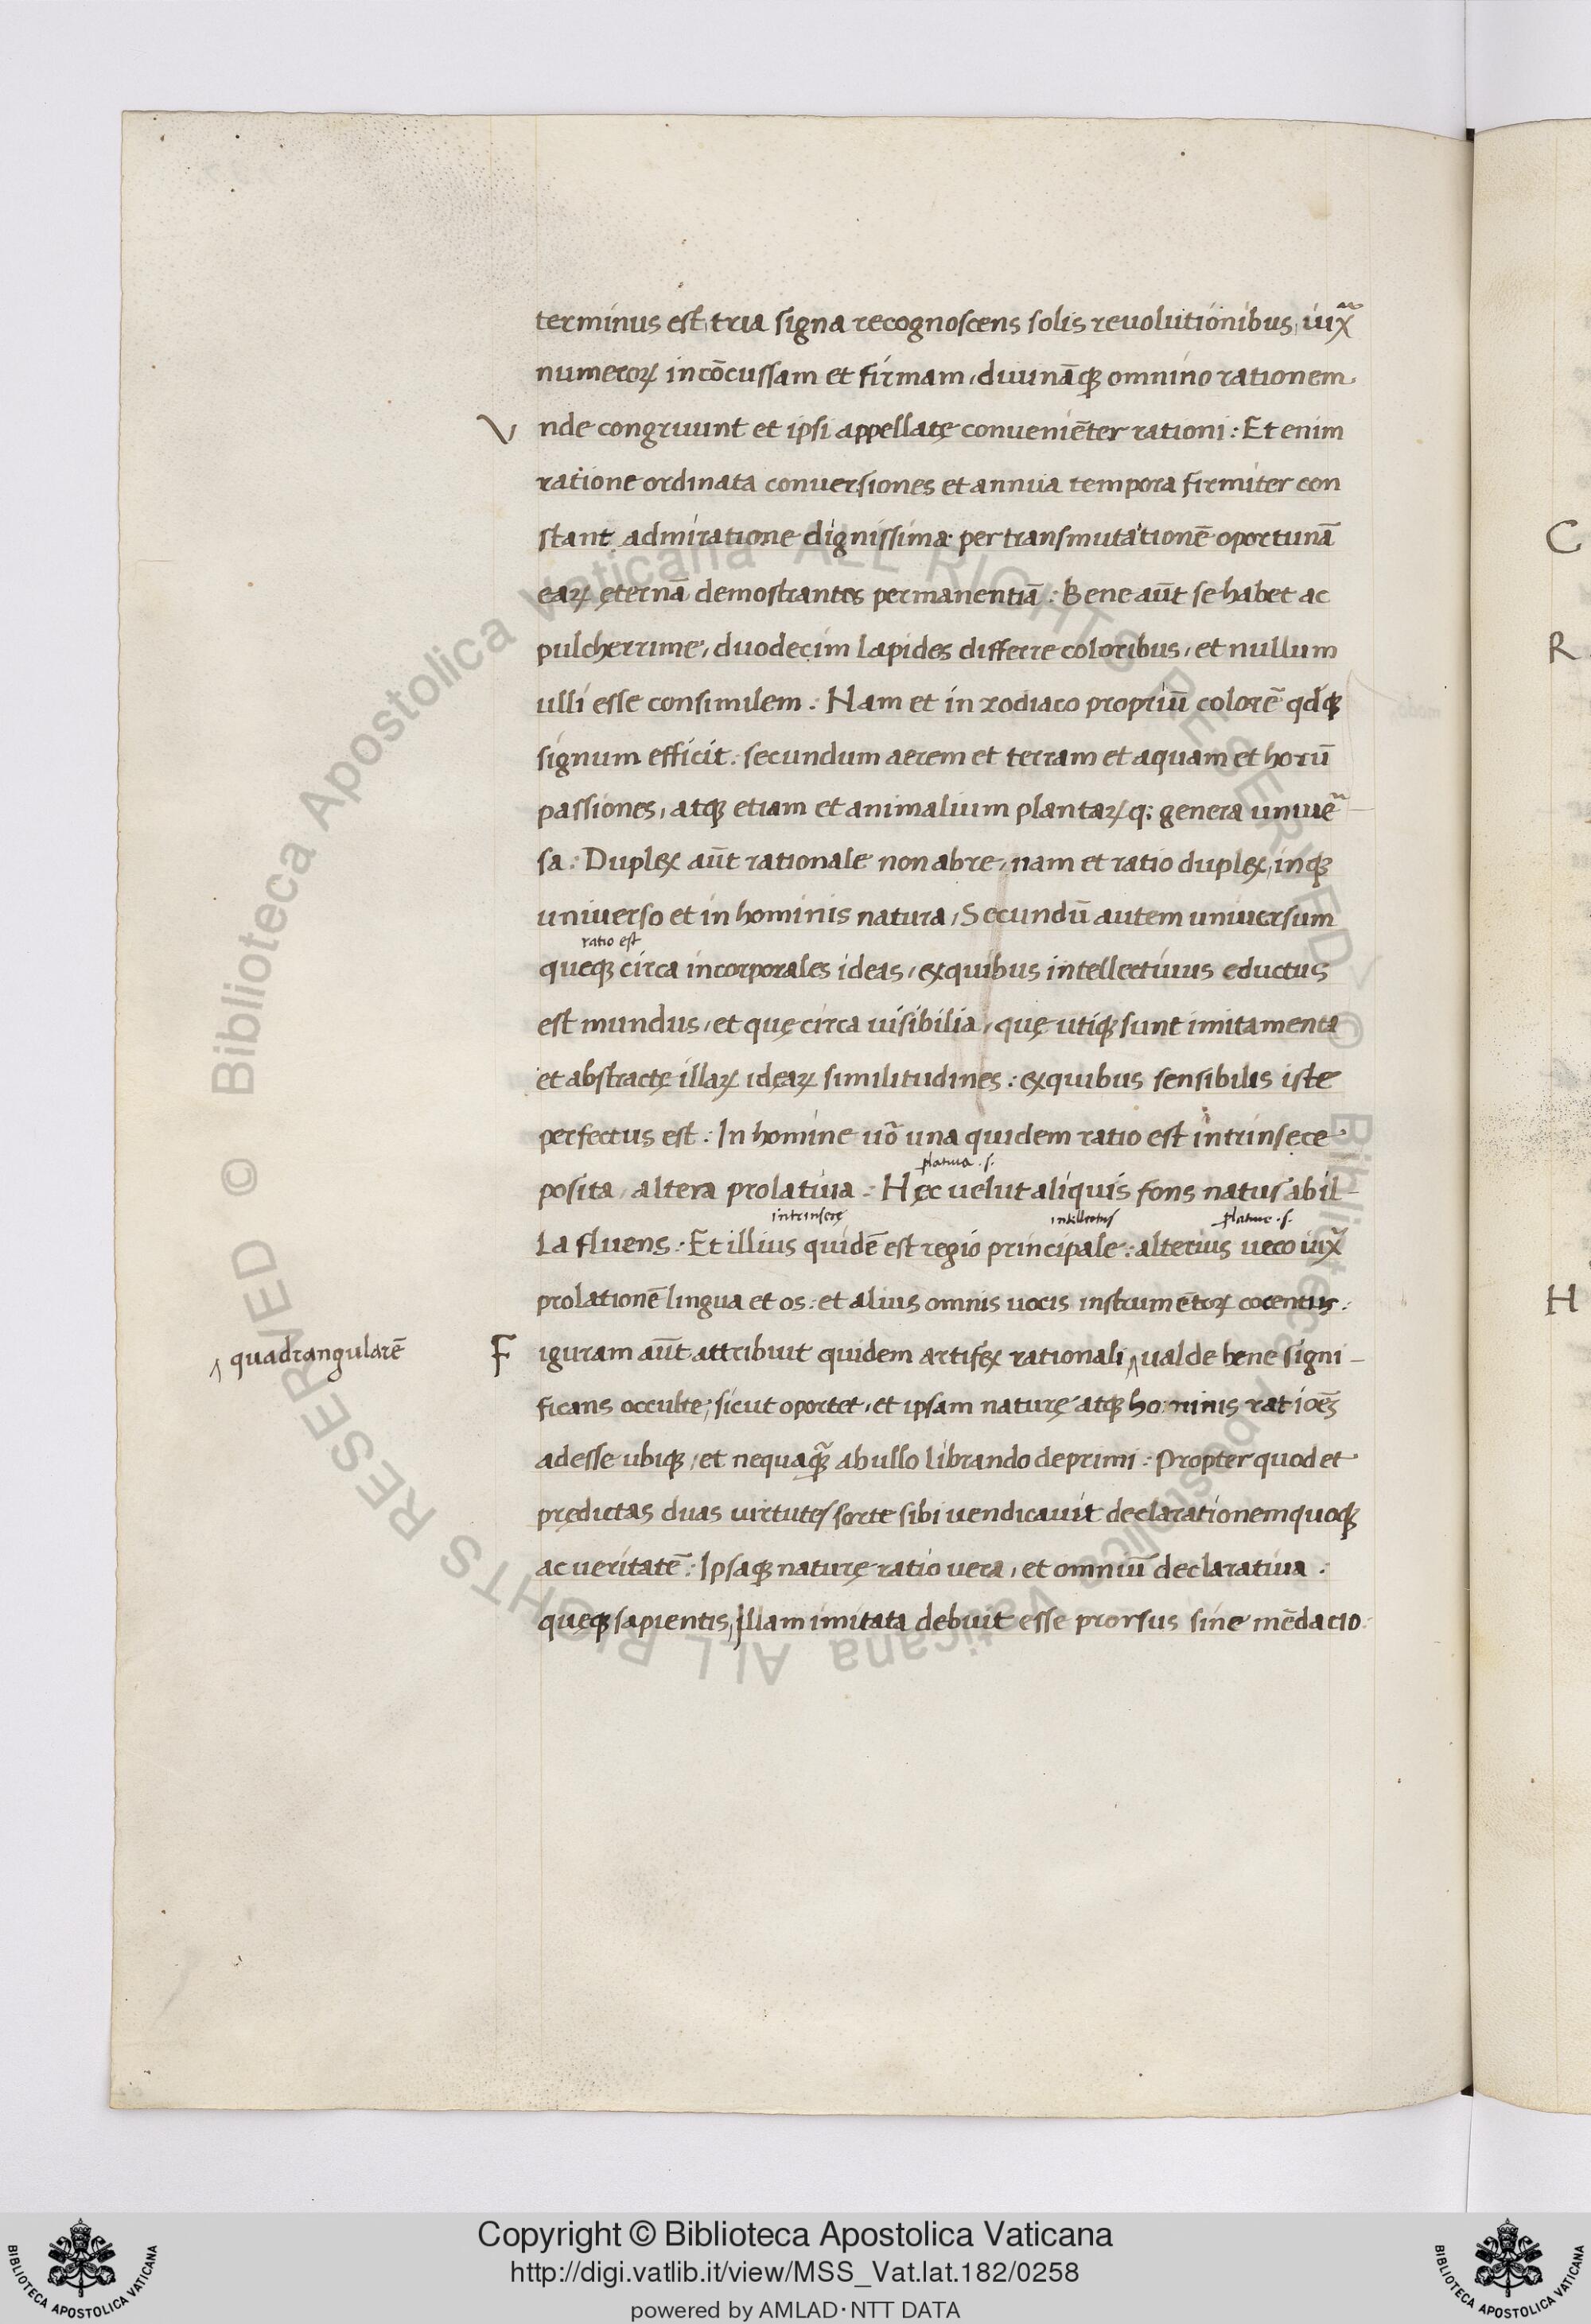 terminus est, tria signa recognoscens solis revolutionibus, iuxͣ
numeroꝝ incōcussam et firmam, diuināqꝫ omnino rationem.
Vnde congruunt et ipsi appellatę conueniēter rationi: Et enim
ratione ordinata conuersiones et annua tempora firmiter con
stant admiratione dignissima per transmutationē oportunā
eaꝝ ęternā demostrantes permanentiā: Bene aūt se habet ac
pulcherrime, duodecim lapides differre coloribus, et nullum
ulli esse consimilem: Nam et in zodiaco propriū colorē qdqꝫ
signum efficit: secundum aerem et terram et aquam et horū
passiones, atqꝫ etiam et animalium plantaꝝq; genera uniuē
sa: Duplex aūt rationale non abre, nam et ratio duplex, inqꝫ
universo et in hominis natura, Secundū autem universum
ratio est
queqꝫ circa incorporales ideas, exquibus intellectivus eductus
est mundus, et quę circa uisibilia, quę utiqꝫ sunt imitamenta
et abstractę illaꝝ idęaꝝ similitudines: exquibus sensibilis iste
perfectus est: In homine uō una quidem ratio est intrinsece
plativa .s.
posita, altera prolatiua: Hęc uelut aliquis fons natus abil-
intrinsecę intellectus plative .s.
la fluens: Et illius quidē est regio principale: alterius uero iuxͣ
prolationē lingua et os: et alius omnis uocis instrumētoꝝ cocentus:
quadrangularē
Figuram aūt attribuit quidem artifex rationali ‸ ualde bene signi-
ficans occulte; sicut oportet, et ipsam naturę atqꝫ hominis ratiōes
adesse ubiqꝫ, et nequaqꝫ̄ ab ullo librando deprimi: Propter quod et
prędictas duas uirtutes sorte sibi uendicauit declarationemquoqꝫ
ac ueritatē: Ipsaqꝫ naturę ratio uera, et omniū declaratiua:
quęqꝫ sapientis, Illam imitata debuit esse prorsus sine mēdacio
C
R
H
Copyright © Biblioteca Apostolica Vaticana
http://digi.vatlib.it/view/MSS_Vat.lat.182/0258
powered by AMLAD·NTT DATA
BIBLIOTECA APOSTOLICA VATICANA
BIBLIOTECA APOSTOLICA VATICANA
© Biblioteca Apostolica Vaticana ALL RIGHTS RESERVED © Biblioteca Apostolica Vaticana ALL RIGHTS RESERVED